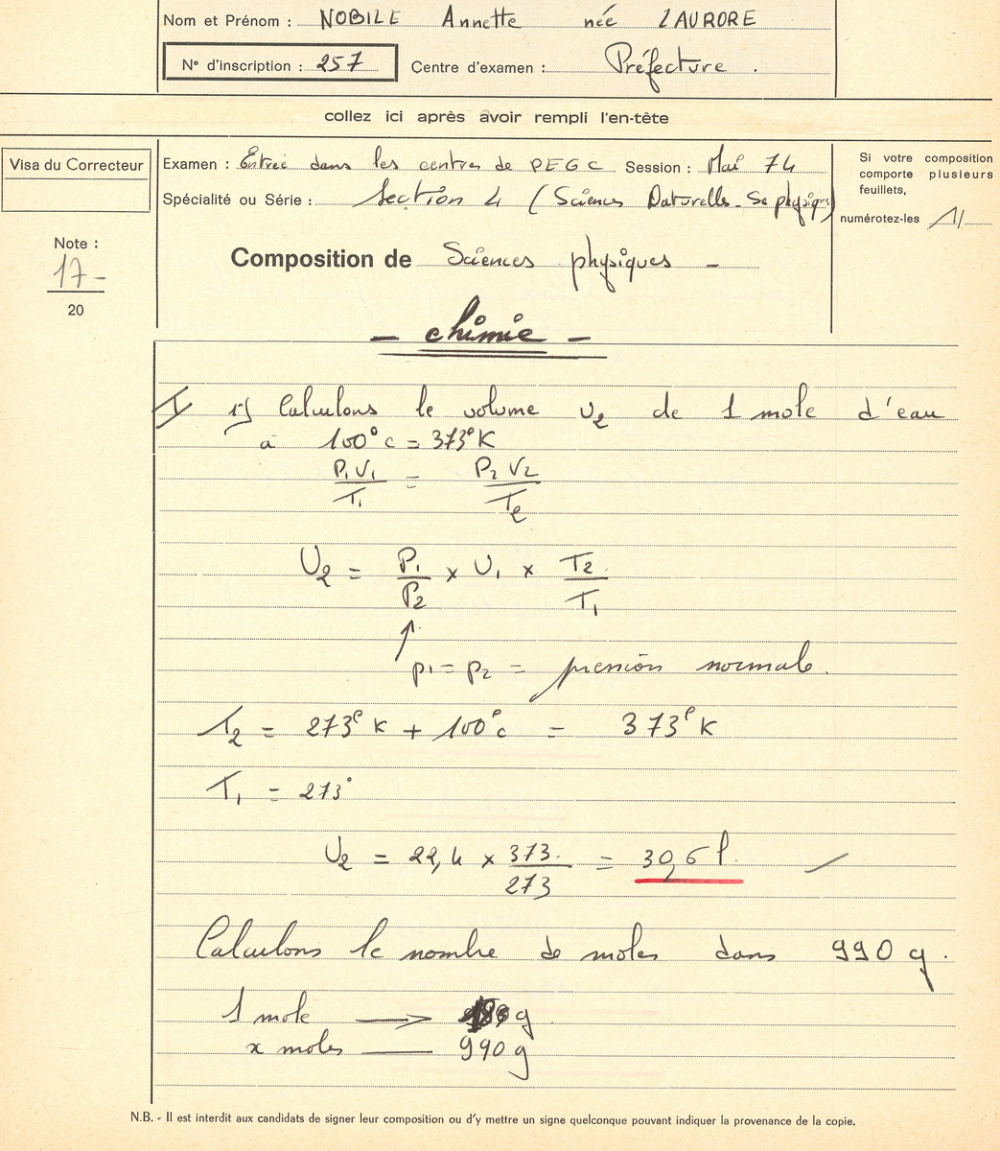 Nom et Prénom : NOBILE Annette née LAURORE
N° d'inscription : 257 Centre d'examen : Préfecture .
collez ici après avoir rempli l'en-tête
Visa du Correcteur
Examen : Entrée dans les centres de PEGC Session : Mai 74
Spécialité ou Série : Section 4 (Sciences Naturelles - Sc physiques)
Si votre composition
comporte plusieurs
feuillets,
numérotez-les 1/
Note :
17 -
20
Composition de Sciences physiques -
- chimie -
I 1°) Calculons le volume v2 de 1 mole d'eau
à 100°c = 373°K
P1 V1 / T1 = P2 V2 / T2
V2 = P1 / P2 x V1 x T2 / T1
↑
p1 = p2 = pression normale.
T2 = 273°K + 100°c = 373°K
T1 = 273°
V2 = 22,4 x 373 / 273 = 30,6 l.
Calculons le nombre de moles dans 990 g.
1 mole → 18 g
x moles — 990 g
N.B. - Il est interdit aux candidats de signer leur composition ou d'y mettre un signe quelconque pouvant indiquer la provenance de la copie.